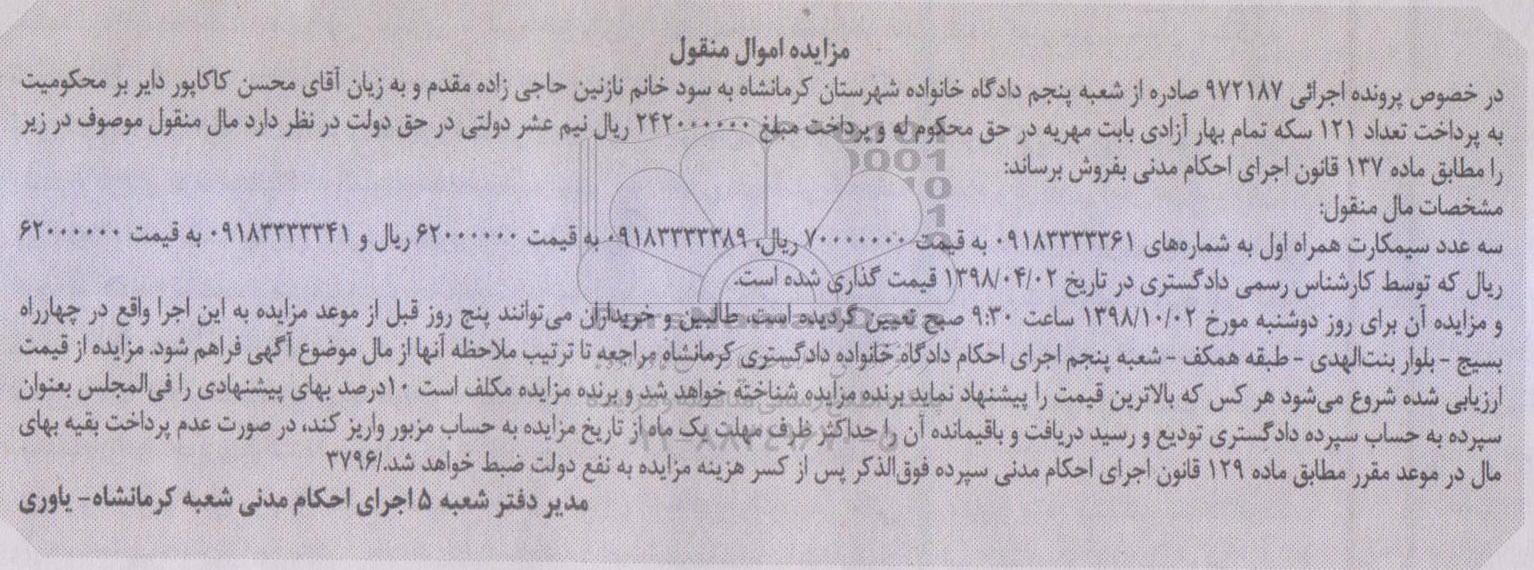 مزایده اموال منقول
در خصوص پرونده اجرائی ۹۷۲۱۸۷ صادره از شعبه پنجم دادگاه خانواده شهرستان کرمانشاه به سود خانم نازنین حاجی زاده مقدم و به زیان آقای محسن کاکاپور دایر بر محکومیت
به پرداخت تعداد ۱۲۱ سکه تمام بهار آزادی بابت مهریه در حق محکوم له و پرداخت مبلغ ۲۴۲۰۰۰۰۰۰ ریال نیم عشر دولتی در حق دولت در نظر دارد مال منقول موصوف در زیر
را مطابق ماده ۱۳۷ قانون اجرای احکام مدنی بفروش برساند:
مشخصات مال منقول:
سه عدد سیمکارت همراه اول به شماره‌های ۰۹۱۸۳۳۳۳۳۶۱ به قیمت ۷۰۰۰۰۰۰۰ ریال، ۰۹۱۸۳۳۳۳۳۸۹ به قیمت ۶۲۰۰۰۰۰۰ ریال و ۰۹۱۸۳۳۳۳۳۴۱ به قیمت ۶۲۰۰۰۰۰۰
ریال که توسط کارشناس رسمی دادگستری در تاریخ ۱۳۹۸/۰۴/۰۲ قیمت گذاری شده است.
و مزایده آن برای روز دوشنبه مورخ ۱۳۹۸/۱۰/۰۲ ساعت ۹:۳۰ صبح تعیین گردیده است، طالبین و خریداران می‌توانند پنج روز قبل از موعد مزایده به این اجرا واقع در چهارراه
بسیج - بلوار بنت‌الهدی - طبقه همکف - شعبه پنجم اجرای احکام دادگاه خانواده دادگستری کرمانشاه مراجعه تا ترتیب ملاحظه آنها از مال موضوع آگهی فراهم شود. مزایده از قیمت
ارزیابی شده شروع می‌شود هر کس که بالاترین قیمت را پیشنهاد نماید برنده مزایده شناخته خواهد شد و برنده مزایده مکلف است ۱۰درصد بهای پیشنهادی را فی‌المجلس بعنوان
سپرده به حساب سپرده دادگستری تودیع و رسید دریافت و باقیمانده آن را حداکثر ظرف مهلت یک ماه از تاریخ مزایده به حساب مزبور واریز کند، در صورت عدم پرداخت بقیه بهای
مال در موعد مقرر مطابق ماده ۱۲۹ قانون اجرای احکام مدنی سپرده فوق‌الذکر پس از کسر هزینه مزایده به نفع دولت ضبط خواهد شد./۳۷۹۶
مدیر دفتر شعبه ۵ اجرای احکام مدنی شعبه کرمانشاه- یاوری